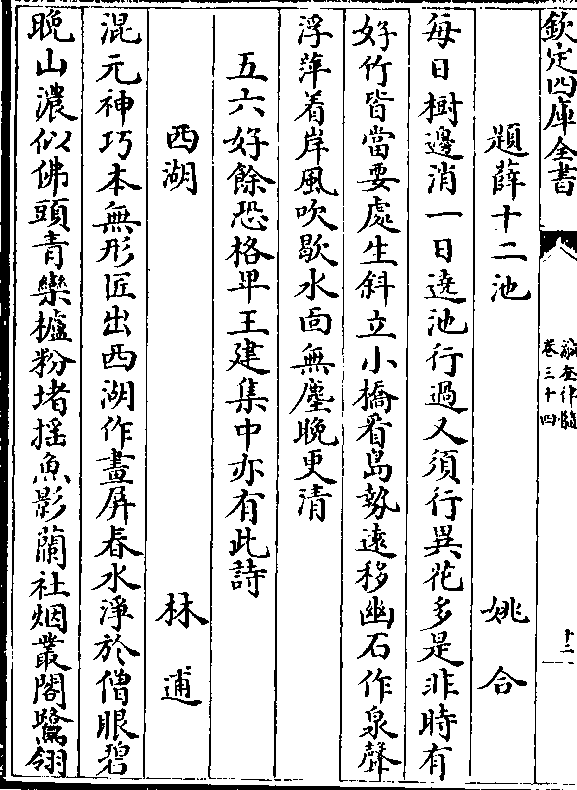 欽定四庫全書
瀛奎律髓
卷三十四
十二
題薛十二池
姚合
每日樹邊消一日遶池行過又須行異花多是非時有
好竹皆當要處生斜立小橋看島勢遠移幽石作泉聲
浮萍着岸風吹歇水面無塵晚更清
五六好餘恐格卑王建集中亦有此詩
西湖
林逋
混元神巧本無形匠出西湖作畫屏春水淨於僧眼碧
晚山濃似佛頭青欒櫨粉堵揺魚影蘭社烟叢閣鷺翎